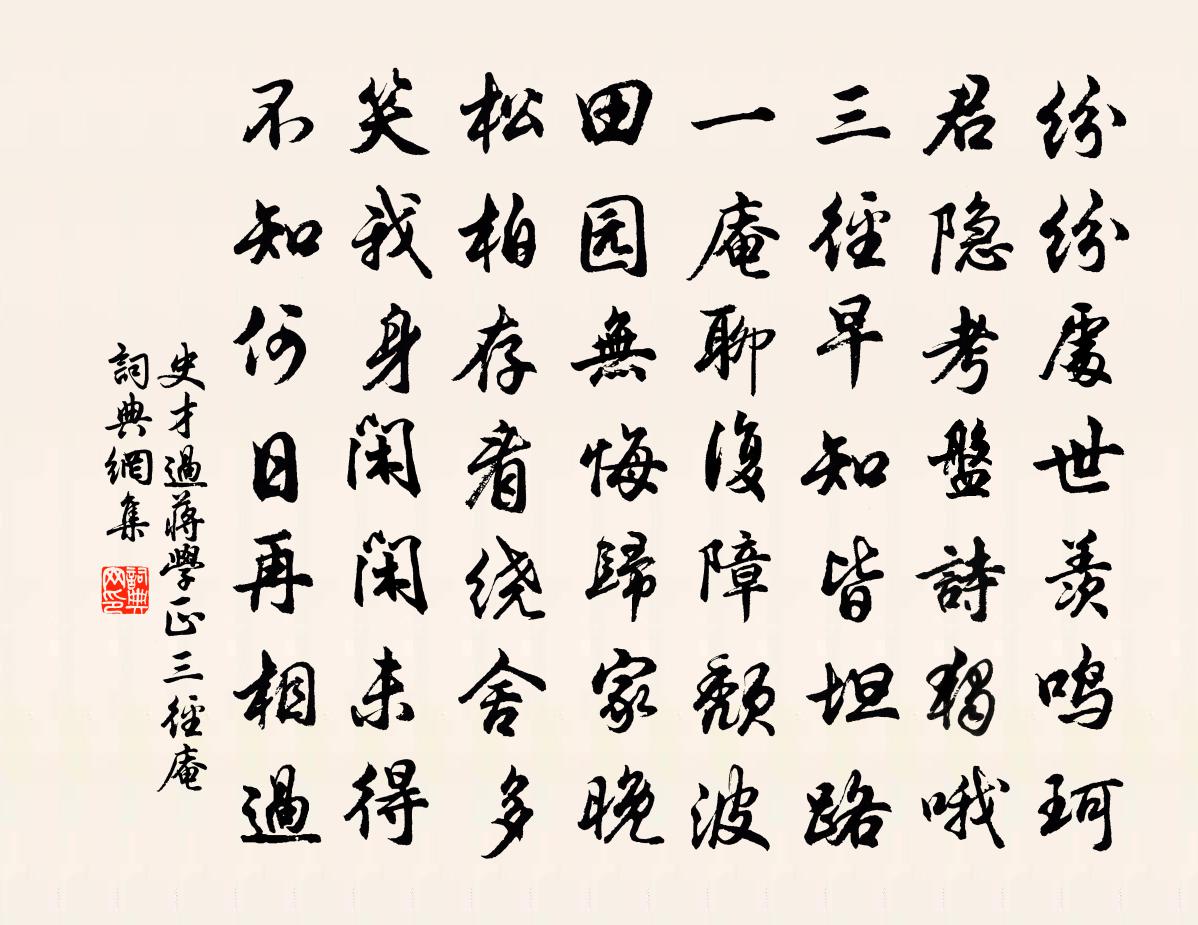 纷纷處世羡鸣珂
君隐考盤詩独哦
三徑早知皆坦路
一庵聊復障颓波
田园無悔歸家晚
松柏存看绕舍多
笑我身闲闲未得
不知何日再相過
史才過蔣學正三徑庵
詞典網集
詞典
网印